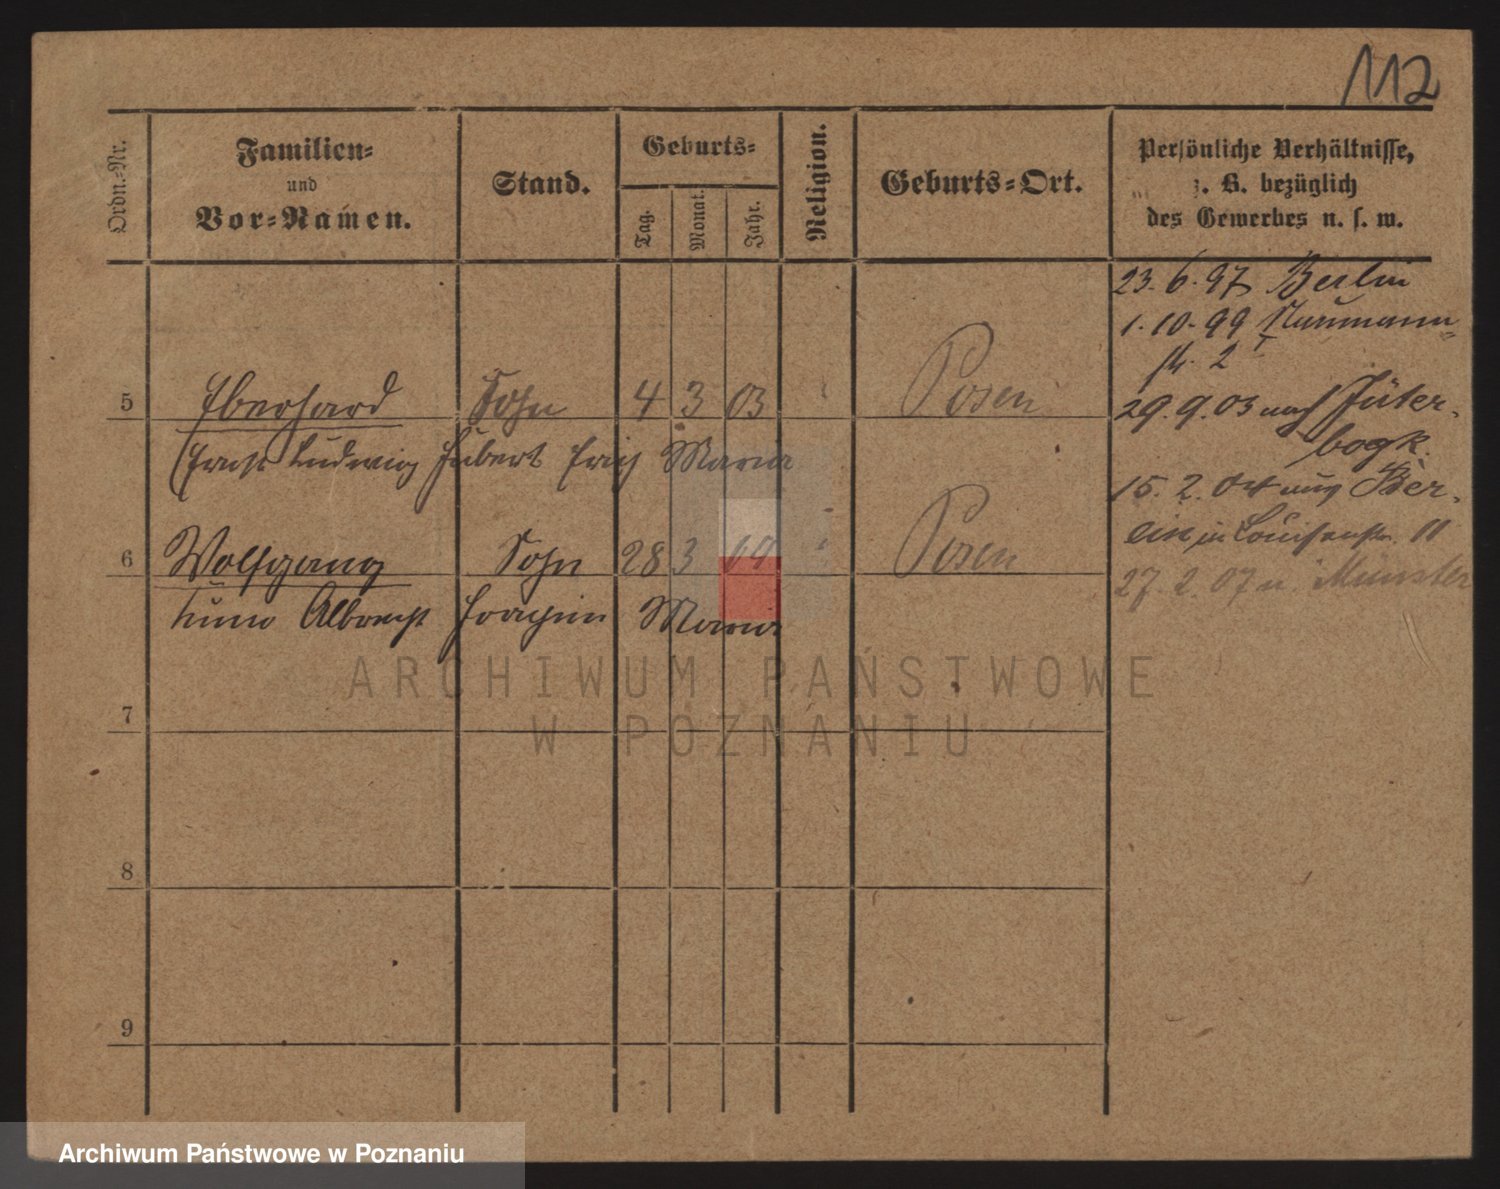 112
Ordn.-Nr.
Familien-
und
Vor-Namen.
Stand.
Geburts-
Tag.
Monat.
Jahr.
Religion.
Geburts-Ort.
Persönliche Verhältnisse,
z. B. bezüglich
des Gewerbes u. s. w.
23. 6. 97 Berlin
1. 10. 99 Naumann-
str. 2
5 Eberhard Sohn 4 3 03 Posen
29. 9. 03 nach Jüter-
bogk.
Ernst Ludwig Hubert Erich Maria
15. 2. 04 aus Ber-
lin in Louisenstr. 11
6 Wolfgang Sohn 28 3 Posen
27. 2. 07 n. Münster
Kuno Albrecht Joachim Maria
7
8
9
ARCHIWUM PAŃSTWOWE
W POZNANIU
Archiwum Państwowe w Poznaniu